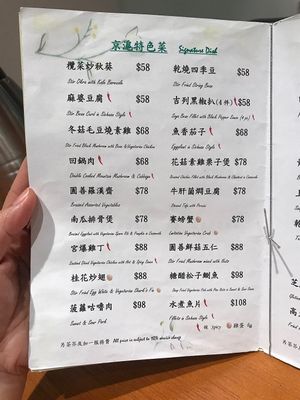 京滬特色菜 Signature Dish
欖菜炒秋葵 $58
Stir Okra with Kale Borecole
麻婆豆腐 $58
Stir Bean Curd in Sichuan Style
冬菇毛豆燒素雞 $68
Stir Fried Black Mushroom with Bean & Vegetarian Chicken
回鍋肉 $68
Double Cooked Meatless Mushroom & Cabbage
圓善羅漢齋 $78
Braised Assorted Vegetables
南瓜排骨煲 $78
Braised Eggplant with Vegetarian Spare Rib & Pumpkin in Casserole
宮爆雞丁 $88
Sauteed Diced Vegetarian Chicken with Hot & Spicy Sauce
桂花炒翅 $88
Stir Fried Egg White & Vegetarian Shark's Fin
菠蘿咕嚕肉 $98
Sweet & Sour Pork
乾燒四季豆 $58
Stir Fried String Bean
古列黑椒扒(4件) $58
Soya Bean Fillet with Black Pepper Sauce (4 pc)
魚香茄子 $68
Eggplant in Sichuan Style
花菇素雞栗子煲 $78
牛肝菌燜豆腐 $78
Braised Tofu with Porcini
賽螃蟹 $78
Imitation Vegetarian Crab
圓善鮮菇五仁 $88
Stir Fried Mushroom mixed with Nuts
糖醋松子鯽魚 $98
水煮魚片 $108
Fillets in Sichuan Style
辣 spicy 雞蛋 Egg
另茶芥及加一服務費 All price is subject to 10% service charge